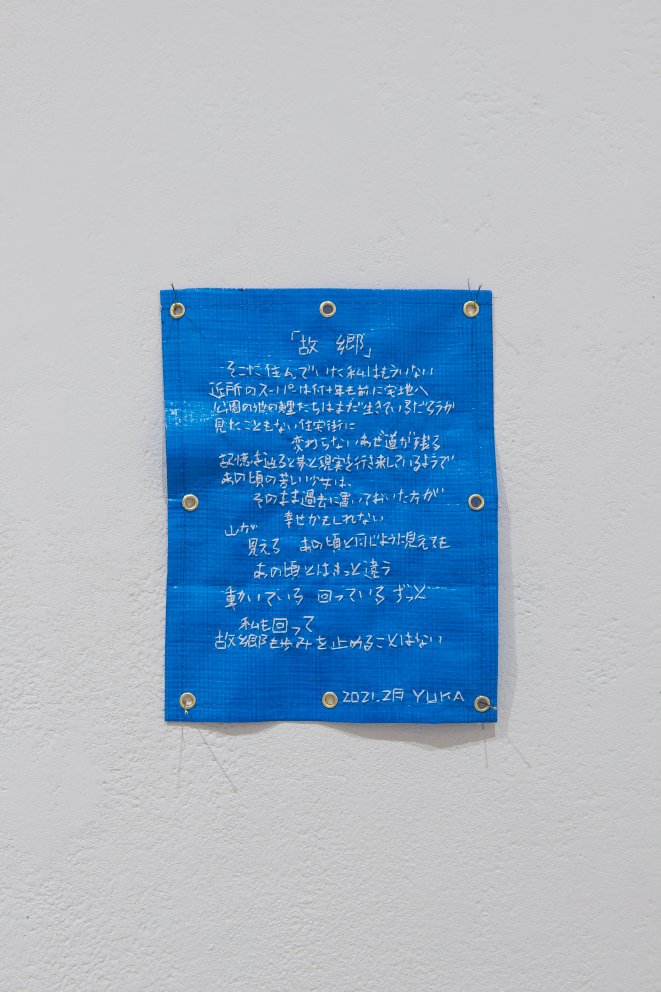 「故 郷」
そこに住んでいた私はもういない
近所のスーパーは何十年も前に宅地へ
公園の池の鯉たちはまだ生きているだろうか
見たこともない住宅街に
変わらないあぜ道が残る
記憶を辿ると夢と現実を行き来しているようで
あの頃の苦しい少女は、
そのまま過去に置いておいた方が
幸せかもしれない
山が
見える あの頃と同じように見えても
あの頃とはきっと違う
動いている 回っている ずっと
私も回って
故郷も歩みを止めることはない
2021.2月 YUKA